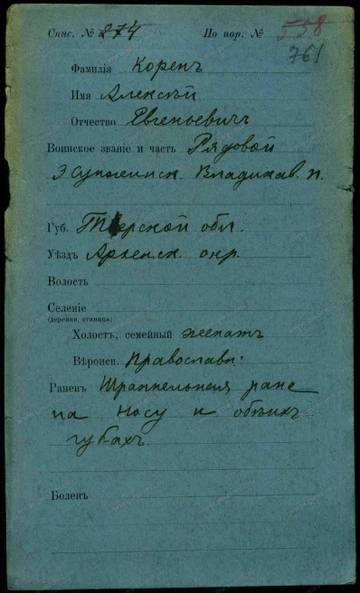 Спис. № 274 По пор. № 558
761
Фамилія Корепъ
Имя Алексѣй
Отчество Евгеньевичъ
Воинское званіе и часть Рядовой
Владикав. п.
Губ. Терской обл.
Уѣздъ окр.
Волость
Селеніе
(деревня, станица)
Холостъ, семейный женатъ
Вѣроисп. Православн.
Раненъ Шрапнельная рана
на носу и обѣихъ
губахъ
Боленъ